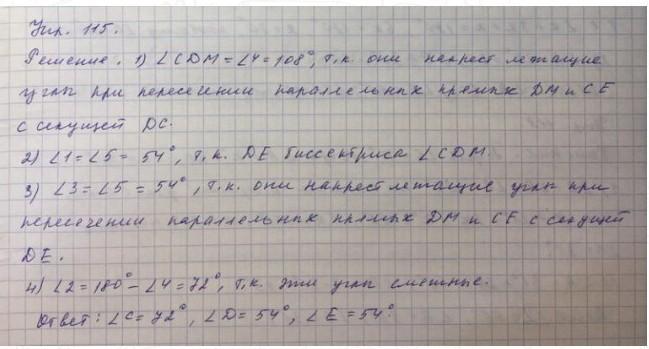 Упр. 115.
Решение. 1) ∠CDM = ∠4 = 108°, т.к. они накрест лежащие
углы при пересечении параллельных прямых DM и CE
с секущей DC.
2) ∠1 = ∠5 = 54°, т.к. DE биссектриса ∠CDM.
3) ∠3 = ∠5 = 54°, т.к. они накрест лежащие углы при
пересечении параллельных прямых DM и CE с секущей
DE.
4) ∠2 = 180° – ∠4 = 72°, т.к. эти углы смежные.
Ответ: ∠C = 72°, ∠D = 54°, ∠E = 54°.